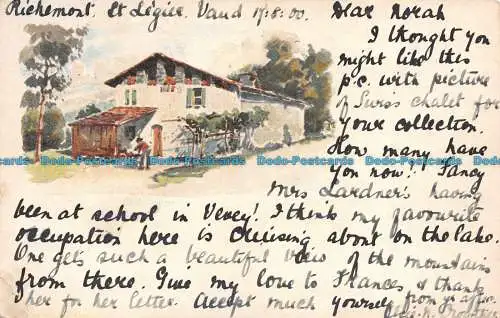 Richemont. St Légier. Vaud 17.8.00.
Dear Norah
I thought you
might like this
p.c. with picture
of Swiss chalet for
your collection.
How many have
you now? Fancy
Mrs Lardner's having
been at school in Vevey! I think my favourite
occupation here is cruising about on the lake.
One gets such a beautiful view of the mountains
from there. Give my love to Frances, & thank
her for her letter. Accept much yourself from yr affec.
Dodo-Postcards Dodo-Postcards Dodo-Postcards Dodo-Postcards Dodo-Postcards Dodo-Postcards